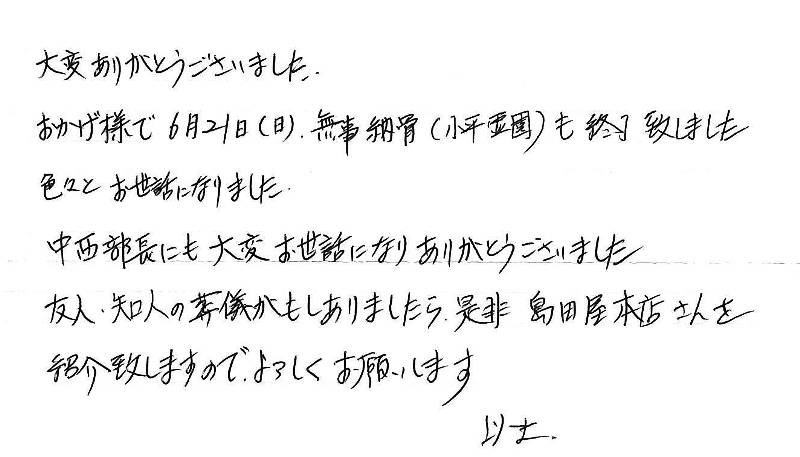 大変ありがとうございました.
おかげ様で6月21日(日).無事納骨(小平霊園)も終了致しました
色々とお世話になりました.
中西部長にも大変お世話になりありがとうございました
友人・知人の葬儀がもしありましたら.是非島田屋本店さんを
紹介致しますので.よろしくお願いします
以上.